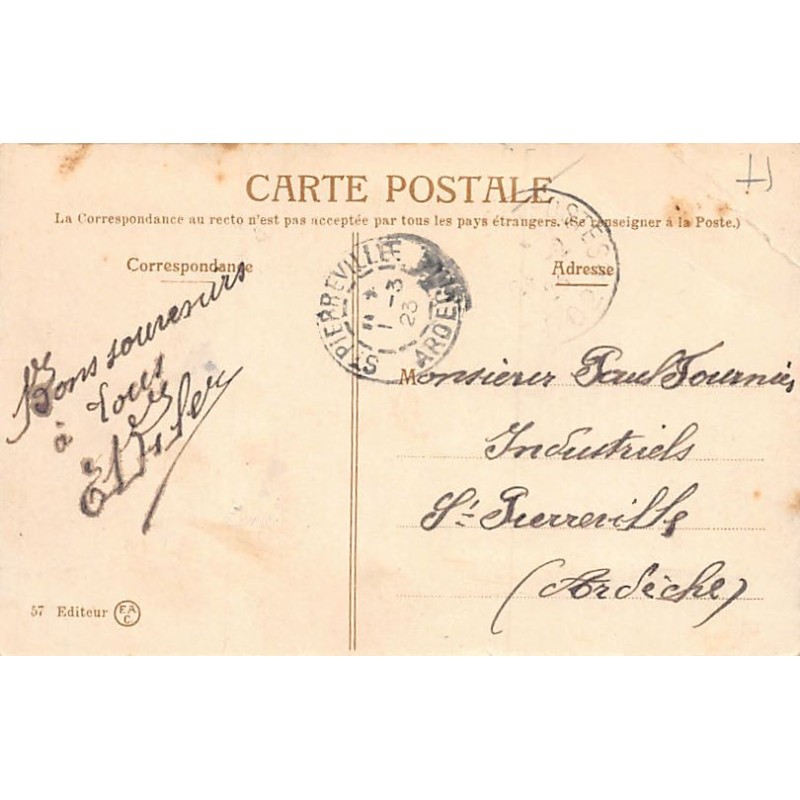 CARTE POSTALE
La Correspondance au recto n'est pas acceptée par tous les pays étrangers. (Se renseigner à la Poste.)
Correspondance
Adresse
ST PIERREVILLE
ARDECHE
1 -3
23
Bons souvenirs
à tous
Monsieur Paul Fournier
Industriels
St Pierreville
(Ardèche)
57 Editeur EAC